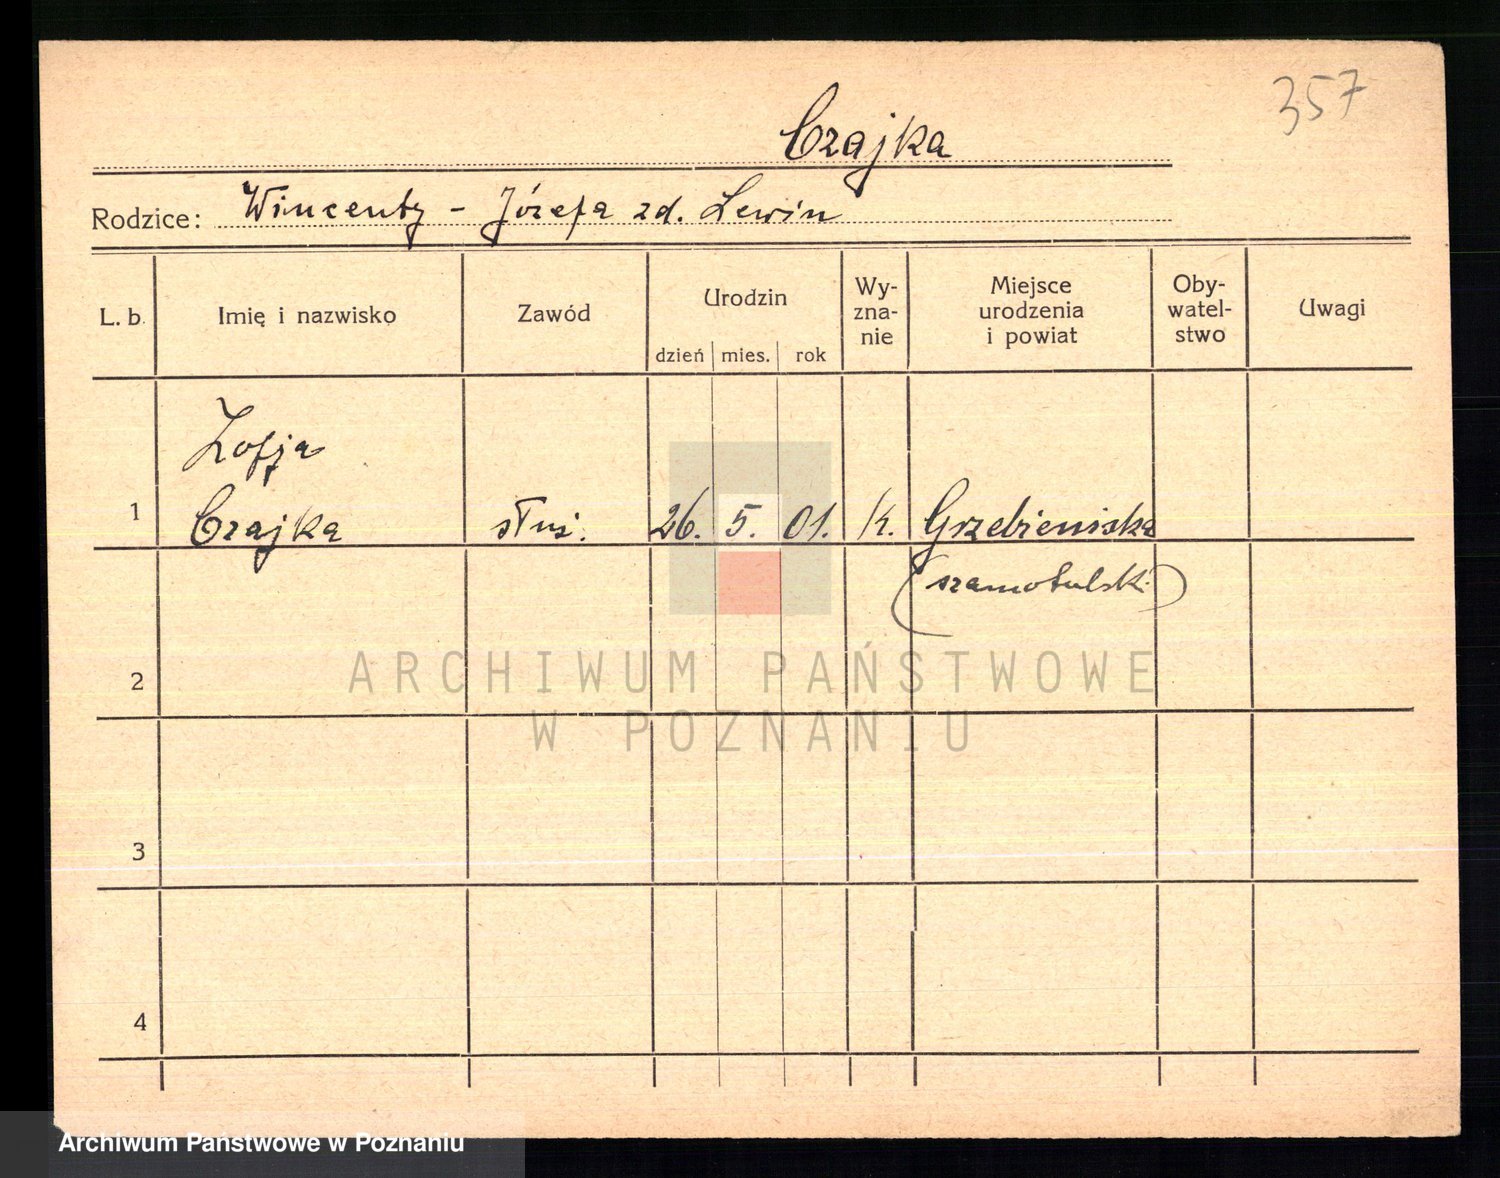 357
Czajka
Rodzice: Wincenty - Józefa zd. Lewin
L. b. Imię i nazwisko Zawód Urodzin dzień mies. rok Wy-zna-nie Miejsce urodzenia i powiat Oby-watel-stwo Uwagi
Zofja
1 Czajka służ. 26. 5. 01. k. Grzebienisko
(szamotulski)
2
ARCHIWUM PAŃSTWOWE
W POZNANIU
3
4
Archiwum Państwowe w Poznaniu